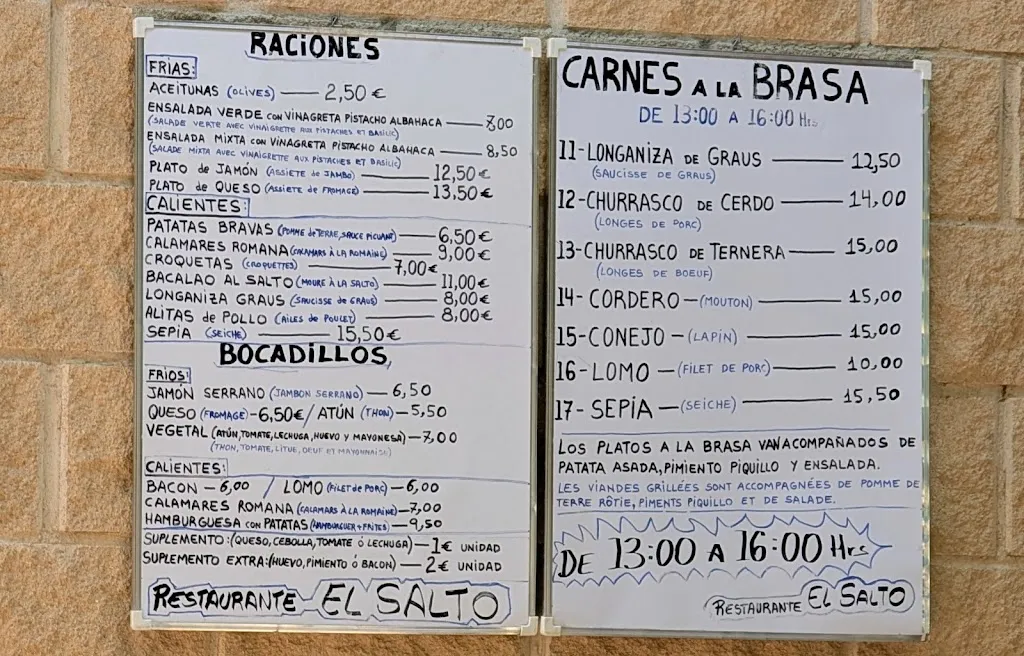 RACIONES
FRIAS:
ACEITUNAS (OLIVES) — 2,50 €
ENSALADA VERDE CON VINAGRETA PISTACHO ALBAHACA — 7,00
(SALADE VERTE AVEC VINAIGRETTE AUX PISTACHES ET BASILIC)
ENSALADA MIXTA CON VINAGRETA PISTACHO ALBAHACA — 8,50
(SALADE MIXTA AVEC VINAIGRETTE AUX PISTACHES ET BASILIC)
PLATO de JAMÓN (ASSIETE de JAMBO) — 12,50 €
PLATO de QUESO (ASSIETE de FROMAGE) — 13,50 €
CALIENTES:
PATATAS BRAVAS (POMME de TERRE, SAUCE PICUANT) — 6,50 €
CALAMARES ROMANA (CALAMARS À LA ROMAINE) — 9,00 €
CROQUETAS (CROQUETTES) — 7,00 €
BACALAO AL SALTO (MOURE À LA SALTO) — 11,00 €
LONGANIZA GRAUS (SAUCISSE de GRAUS) — 8,00 €
ALITAS de POLLO (AILES de POULET) — 8,00 €
SEPIA (SEICHE) — 15,50 €
BOCADILLOS
FRIOS:
JAMÓN SERRANO (JAMBON SERRANO) — 6,50
QUESO (FROMAGE) - 6,50€ / ATÚN (THON) — 5,50
VEGETAL (ATÚN, TOMATE, LECHUGA, HUEVO Y MAYONESA) — 7,00
(THON, TOMATE, LITUE, OEUF ET MAYONNAISE)
CALIENTES:
BACON — 6,00 / LOMO (FILET de PORC) — 6,00
CALAMARES ROMANA (CALAMARS À LA ROMAINE) — 7,00
HAMBURGUESA CON PATATAS (HAMBURGUER + FRITES) — 9,50
SUPLEMENTO: (QUESO, CEBOLLA, TOMATE Ó LECHUGA) — 1€ UNIDAD
SUPLEMENTO EXTRA: (HUEVO, PIMIENTO Ó BACON) — 2€ UNIDAD
RESTAURANTE EL SALTO
CARNES A LA BRASA
DE 13:00 A 16:00 Hrs
11-LONGANIZA DE GRAUS — 12,50
(SAUCISSE DE GRAUS)
12-CHURRASCO DE CERDO — 14,00
(LONGES DE PORC)
13-CHURRASCO DE TERNERA — 15,00
(LONGES DE BOEUF)
14- CORDERO — (MOUTON) — 15,00
15-CONEJO — (LAPIN) — 15,00
16-LOMO — (FILET DE PORC) — 10,00
17-SEPIA — (SEICHE) — 15,50
LOS PLATOS A LA BRASA VAN ACOMPAÑADOS DE
PATATA ASADA, PIMIENTO PIQUILLO Y ENSALADA.
LES VIANDES GRILLÉES SONT ACCOMPAGNÉES DE POMME DE
TERRE RÔTIE, PIMENTS PIQUILLO ET DE SALADE.
DE 13:00 A 16:00 Hrs
RESTAURANTE EL SALTO